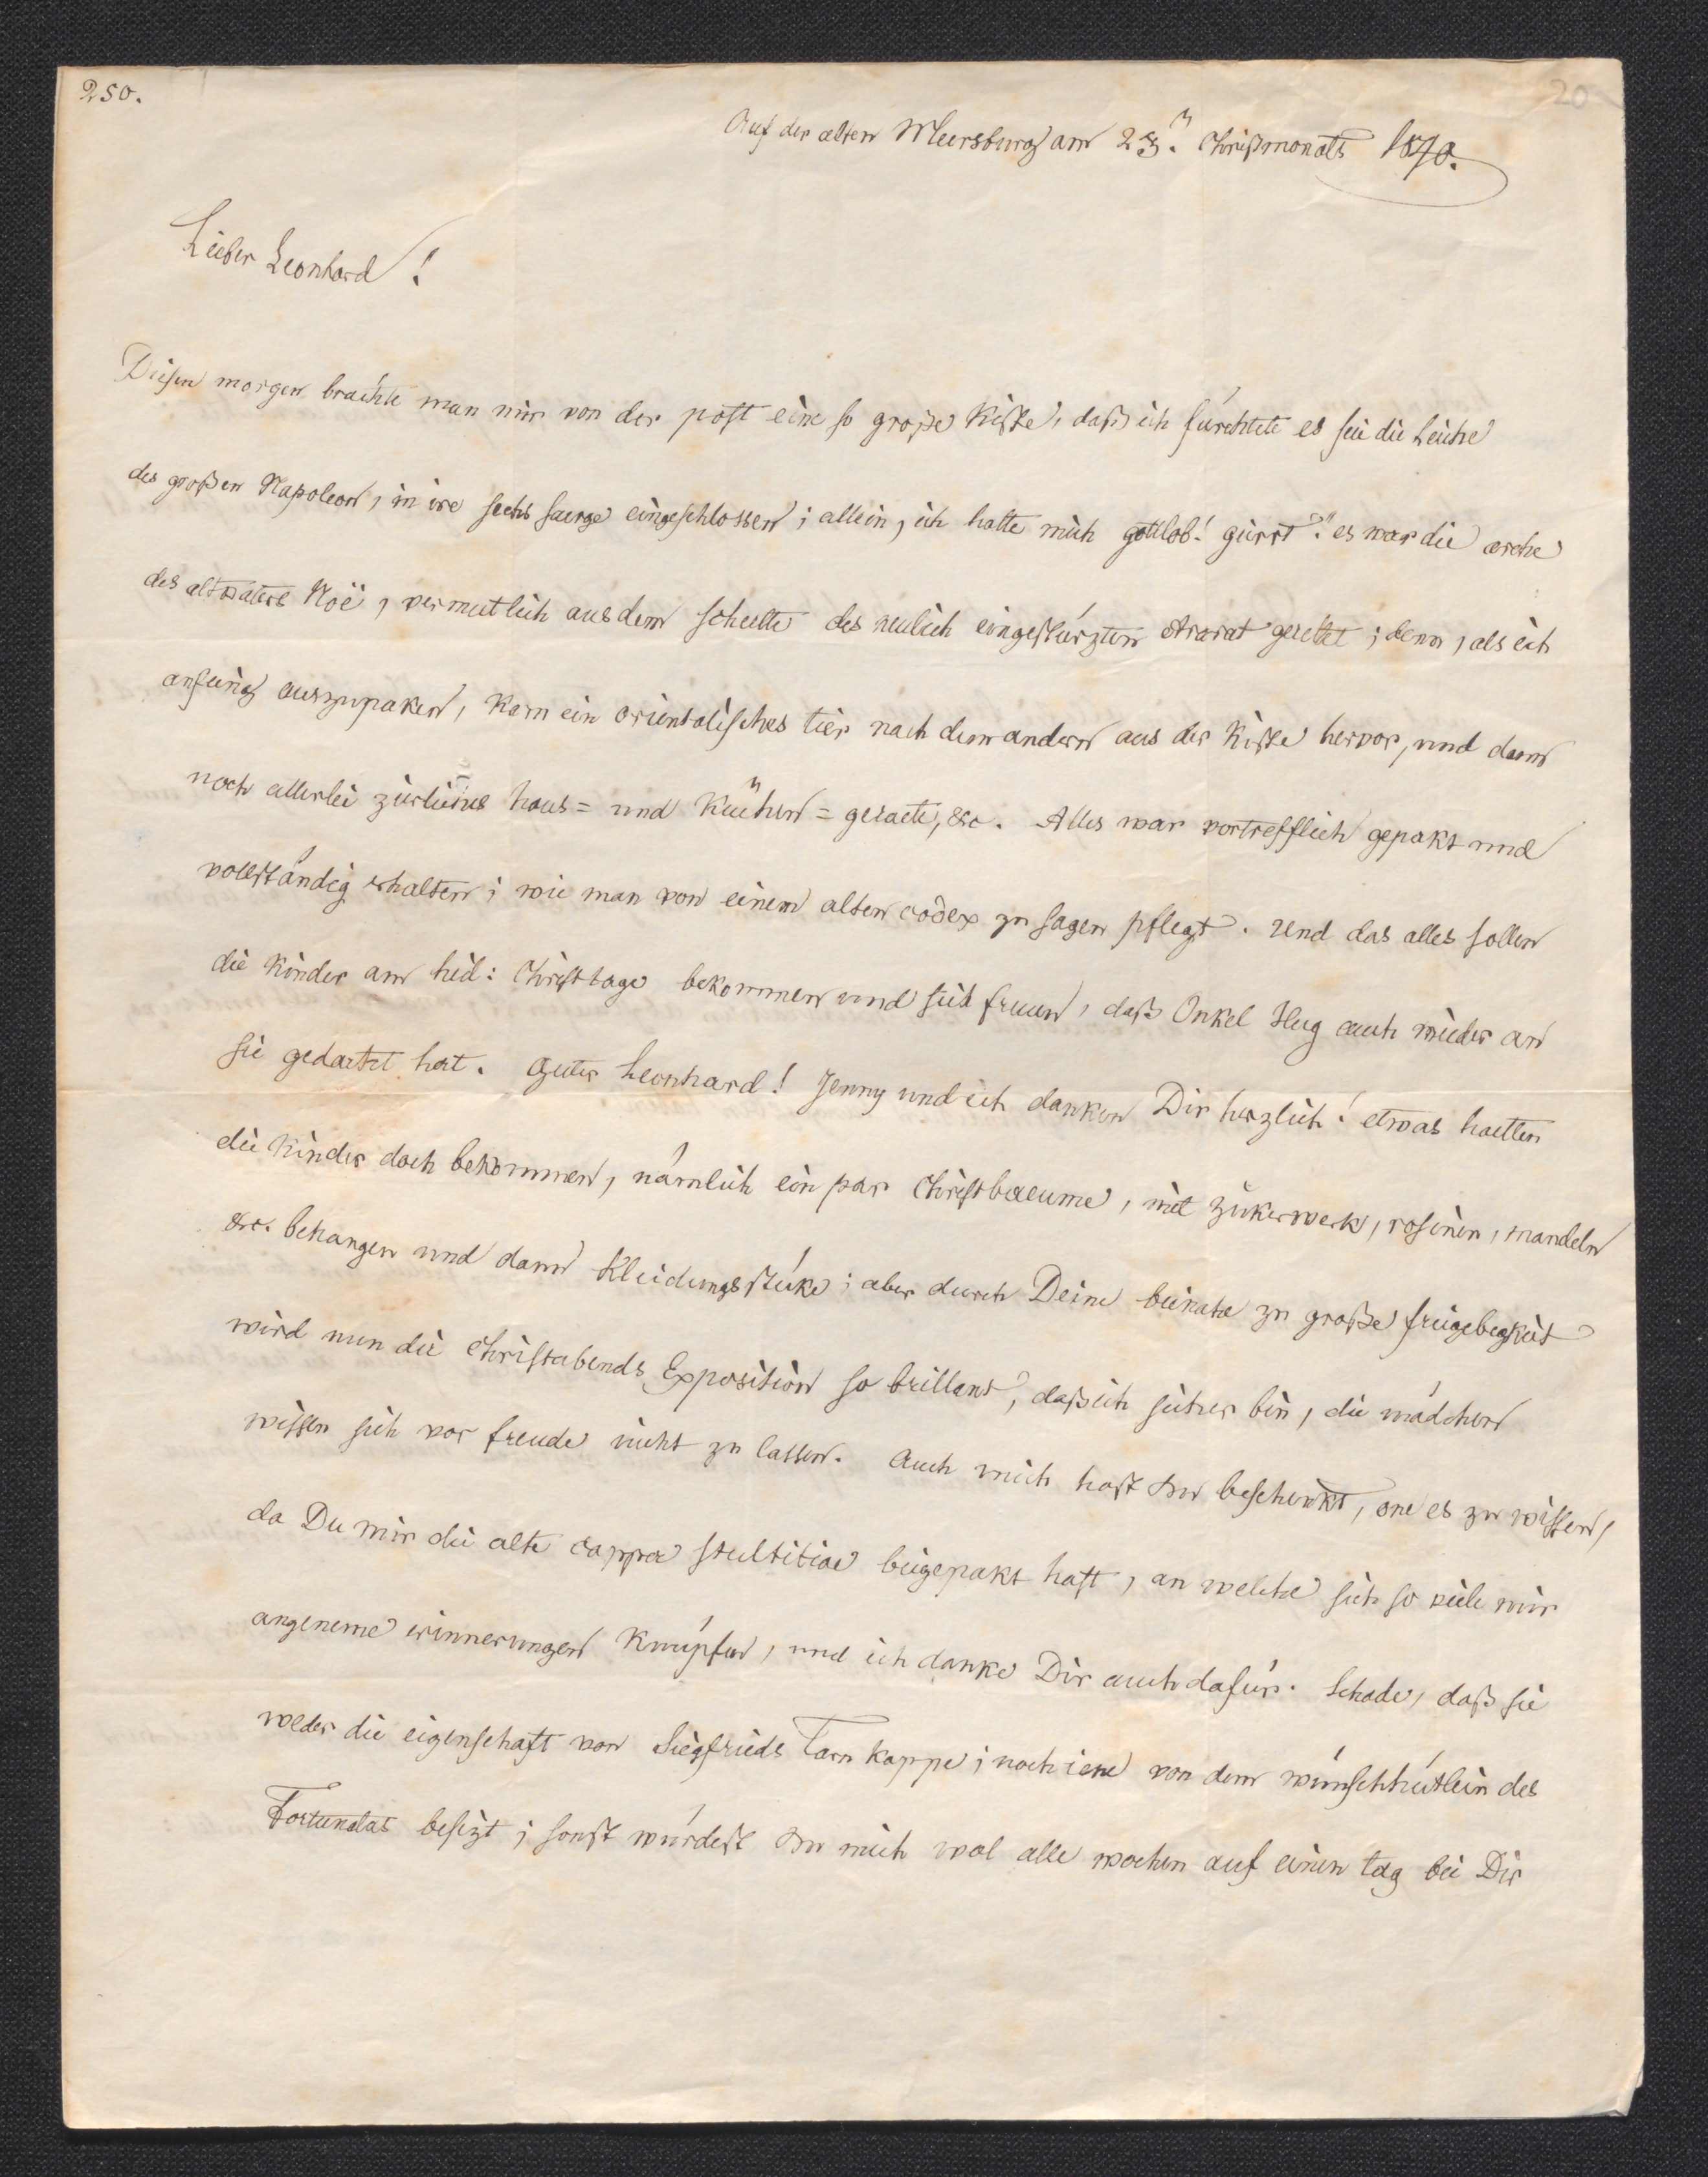 250.
20
Auf der alten Meersburg am 23.n Christmonats 1840.
Lieber Leonhard!
Diesen morgen brachte man mir von der post eine so große kiste, daß ich fürchtete es sei die leiche
des großen Napoleon, in ire sechs saerge eingeschlossen; allein, ich hatte mich gottlob! geirrt." es war die arche
des altvaters Noë, vermutlich aus dem schutte des neulich eingestürzten Ararat gerettet; denn, als ich
anfieng auszupaken, kam ein orientalisches tier nach dem andern aus der kiste hervor, und dann
noch allerlei zierliches haus= und küchen=geraete, &c. Alles war vortrefflich gepakt und
vollständig erhalten; wie man von einem alten codex zu sagen pflegt. Und das alles sollen
die kinder am heil: Christtage bekommen und sich freuen, daß Onkel Hug auch wieder an
sie gedacht hat. Guter Leonhard! Jenny und ich danken Dir herzlich! etwas haetten
die kinder doch bekommen, nämlich ein par Christbaeume, mit zukerwerk, rosinen, mandeln
&c. behangen und dann kleidungsstüke; aber durch Deine beinahe zu große freigebigkeit
wird nun die Christabends Exposition so brillant, daß ich sicher bin, die mädchen
wissen sich vor freude nicht zu lassen. Auch mich hast Du beschenkt, one es zu wissen,
da Du mir die alte cappa stultitiae beigepakt hast, an welche sich so viele mir
angeneme erinnerungen knüpfen, und ich danke Dir auch dafür. Schade, daß sie
weder die eigenschaft von Siegfrieds Tarnkappe; noch iene von dem wünschhütlein des
Fortunatus besizt; sonst würdest Du mich wol alle wochen auf einen tag bei Dir